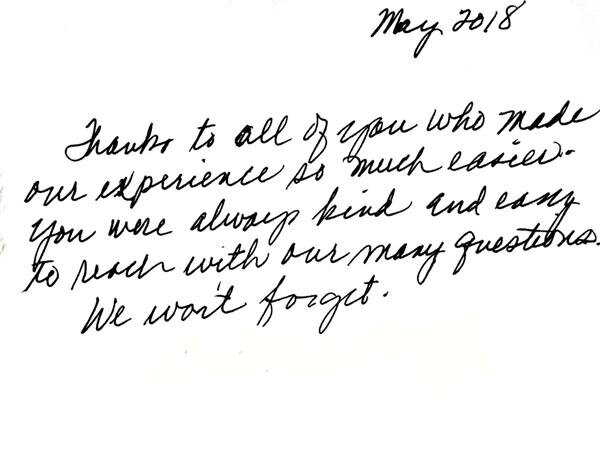 May 2018
Thanks to all of you who made
our experience so much easier.
You were always kind and easy
to reach with our many questions.
We won't forget.